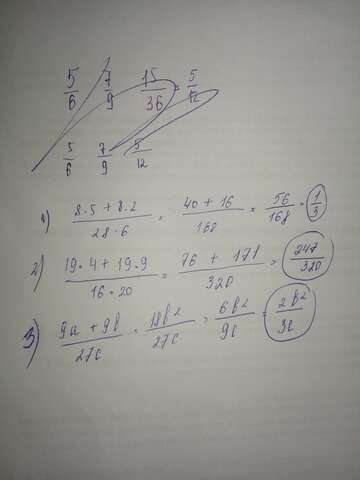 5/6 7/9 15/36 = 5/12
5/6 7/9 5/12
1) (8·5 + 8·2)/(28·6) = (40 + 16)/168 = 56/168 = 1/3
2) (19·4 + 19·9)/(16·20) = (76 + 171)/320 = 247/320
3) (9a + 9b)/27c = 18b²/27c = 6b²/9c = 2b²/3c